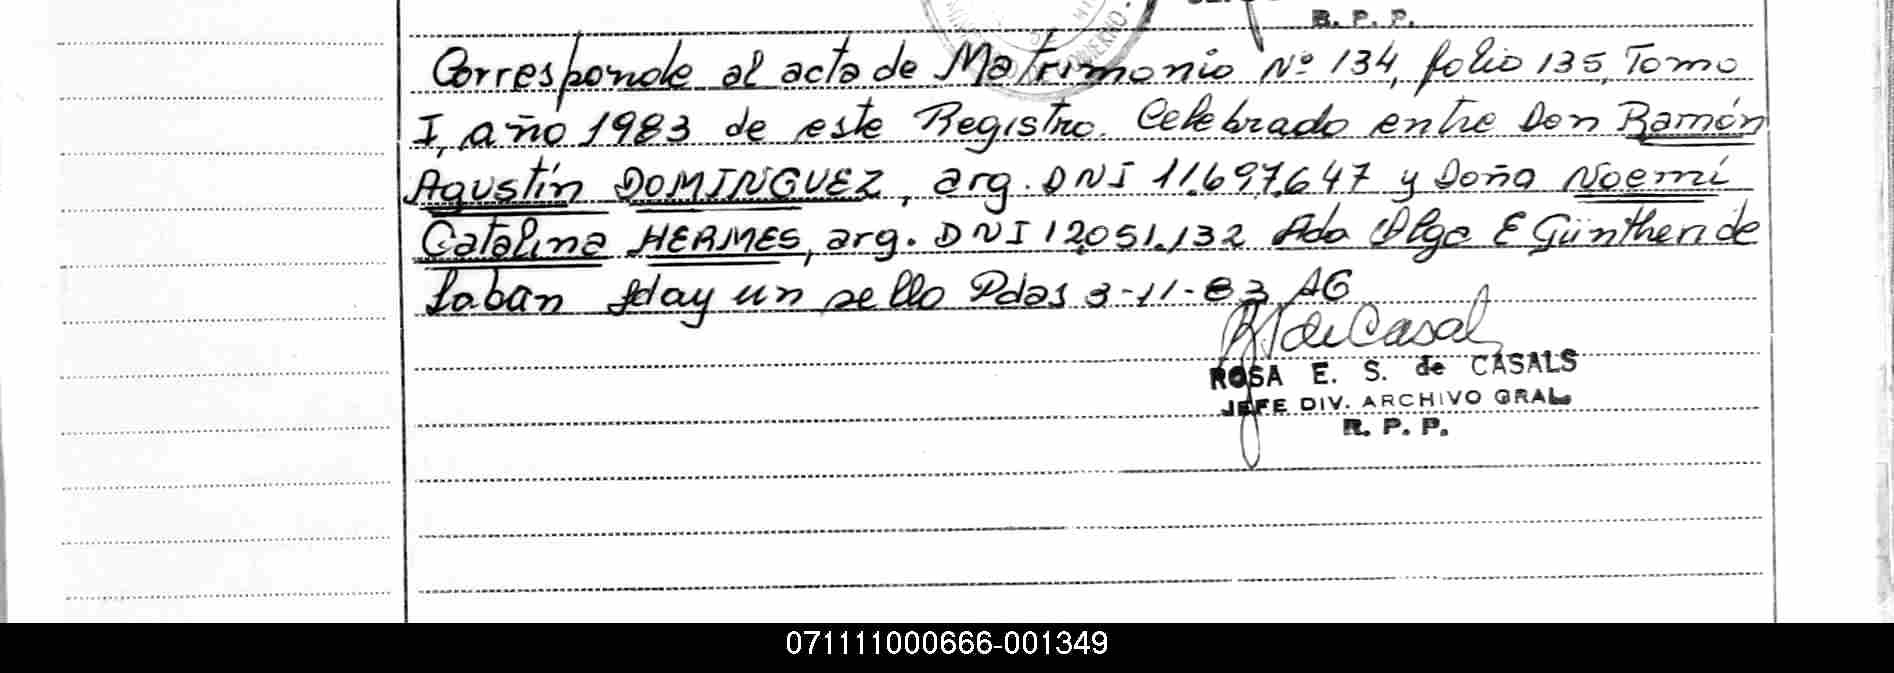 R. P. P.
Corresponde al acta de Matrimonio Nº 134, folio 135, Tomo
I, año 1983 de este Registro. Celebrado entre Don Ramón
Agustín DOMINGUEZ, arg. DNI 11.697.647 y Doña Noemí
Catalina HERMES, arg. DNI 12.051.132 Fdo Olga E Günther de
Laban Hay un sello Pdas 3-11-83 AG
ROSA E. S. de CASALS
JEFE DIV. ARCHIVO GRAL
R. P. P.
071111000666-001349